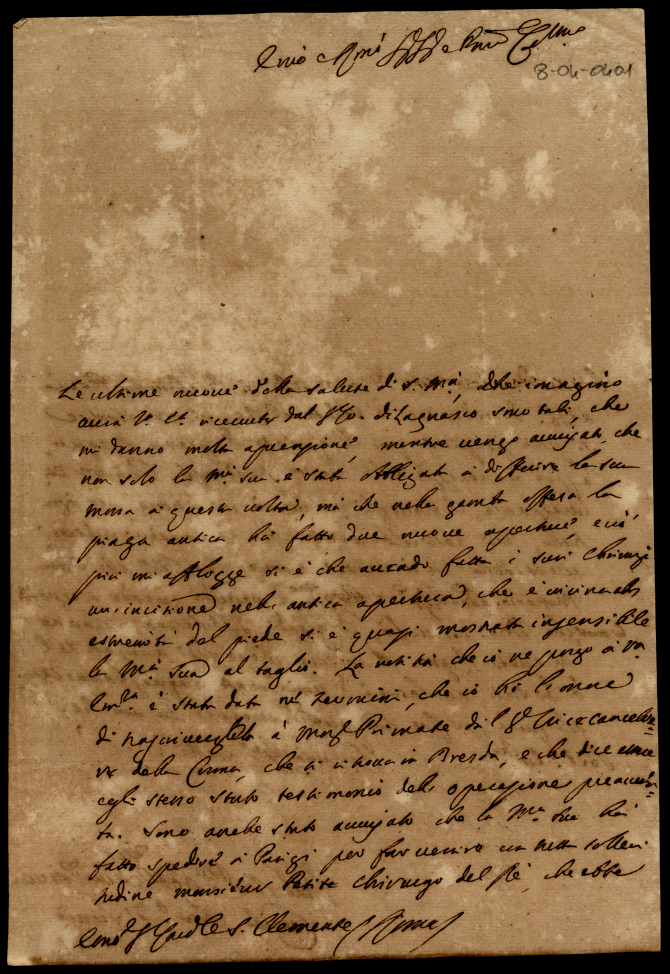 8-04-0401
Le ultime nuove della salute di S. Mtà, che imagino
avrà V. E. ricevute dal Sr Co. di Lagnasco sono tali, che
mi danno molta apprensione, mentre vengo avvisato, che
non solo la Mtà sua è stata obbligata a differire la sua
mossa a questa volta, mà che nella gamba offesa la
piaga antica hà fatto due nuove aperture, e ciò
più mi affligge si è che avendo fatta i suoi chirurgi
un'incisione nella antica apertura, che è vicina alla
estremità del piede si è quasi mostrata insensibile
la Mtà Sua al taglio. La notizia che io ne porgo a Va
Emza è stata data ne' termini, che io hò l'onore
di trascrivergliela à Monsr Primate dal Sr Vicecancellie=
re della Corona, che si ritrova in Dresda, e che dice essere
egli stesso stato testimonio della operazione
ta. Sono anche stato avvisato che la Mtà Sua hà
fatto spedire a Parigi per far venire con tutta solleci
tudine monsieur Petit chirurgo del Rè, che ebbe
S. Clemente Roma